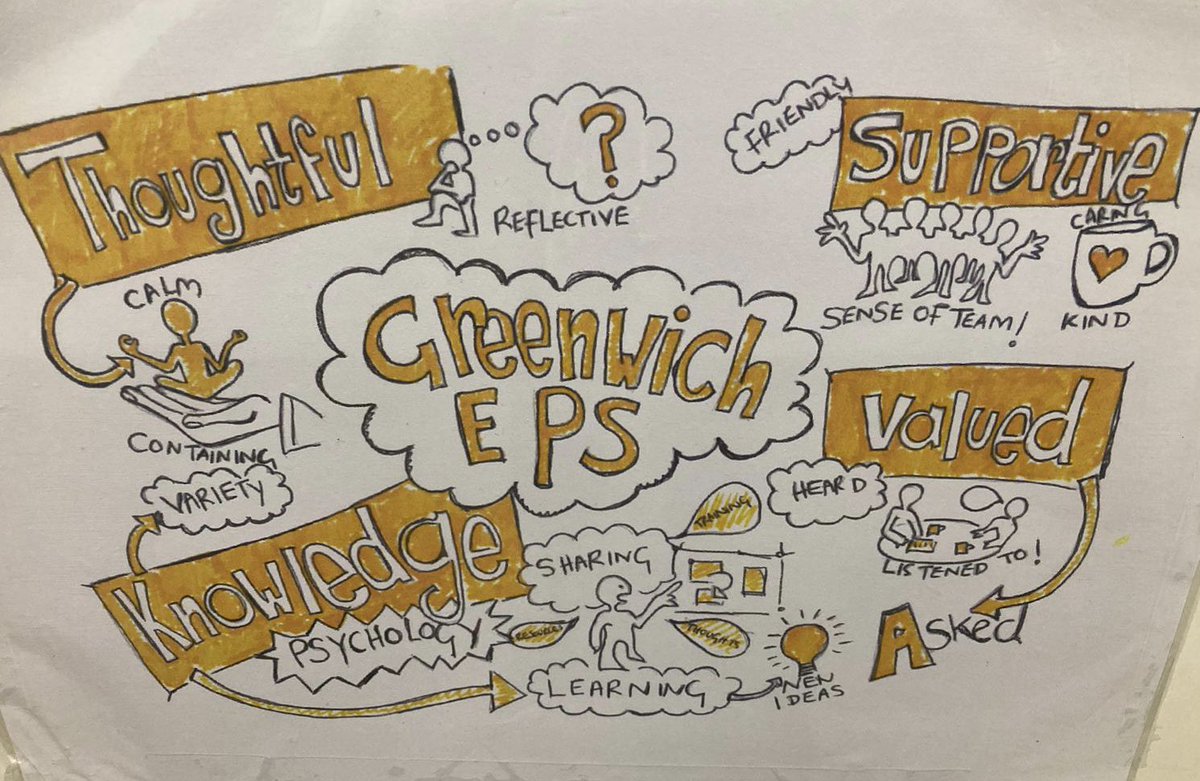 Thoughtful
REFLECTIVE
?
FRIENDLY
Supportive
CARING
KIND
SENSE OF TEAM!
CALM
CONTAINING
Greenwich
EPS
Valued
HEARD
LISTENED TO!
Asked
VARIETY
Knowledge
PSYCHOLOGY
SHARING
TRAINING
RESOURCES
THOUGHTS
LEARNING
NEW
IDEAS